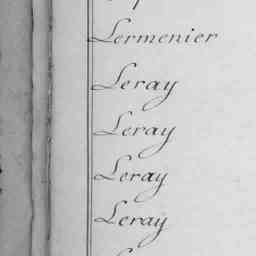 Lermenier
Leray
Leray
Leray
Leray